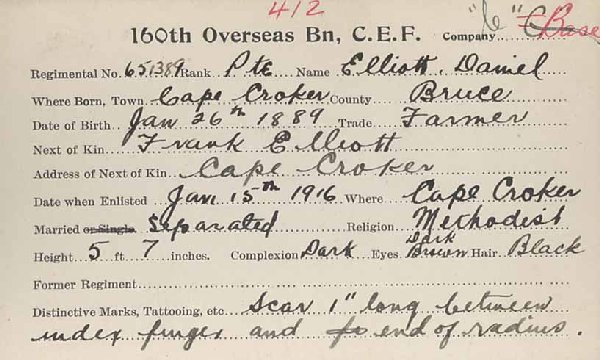 412
"C" Base
160th Overseas Bn, C.E.F. Company
Regimental No. 651389 Rank Pte Name Elliott, Daniel
Where Born, Town Cape Croker County Bruce
Date of Birth Jan 26th 1889 Trade Farmer
Next of Kin Frank Elliott
Address of Next of Kin Cape Croker
Date when Enlisted Jan 15th 1916 Where Cape Croker
Married or Single Separated Religion Methodist
Height 5 ft 7 inches. Complexion Dark Eyes Dark Brown Hair Black
Former Regiment
Distinctive Marks, Tattooing, etc Scar 1" long between
index finger and end of radius.